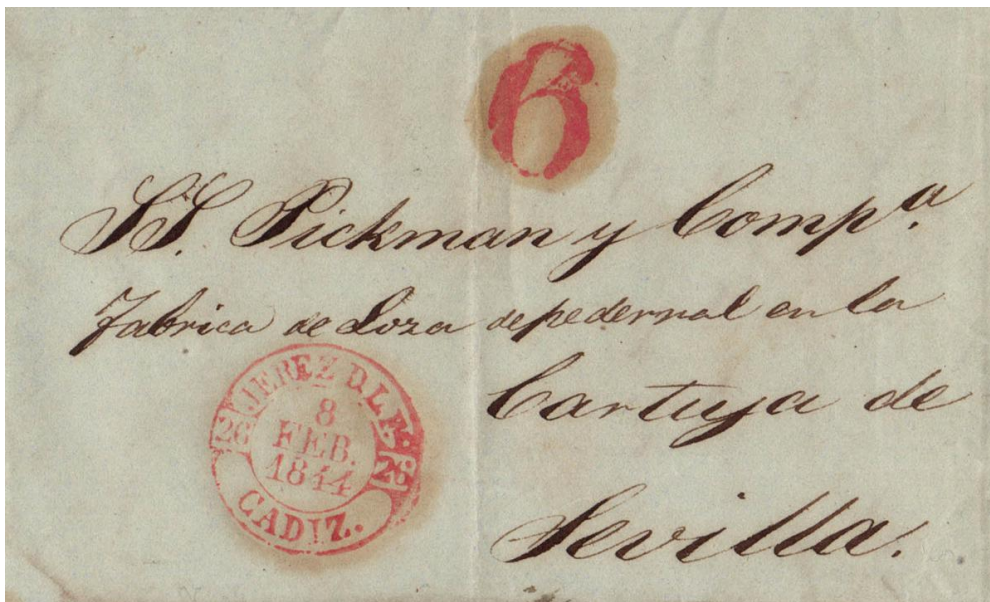 6
SS. Pickman y Compa.
fabrica de Loza de pedernal en la
Cartuja de
Sevilla.
JEREZ D.L.F.
26 26
8
FEB.
1844
CADIZ.